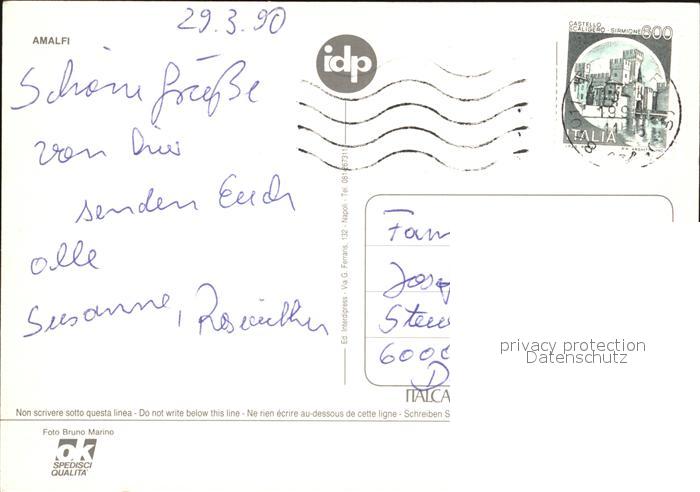 29.3.90
AMALFI
Schöne Grüße
von hier
senden Euch
alle
Susanne,
idp
CASTELLO
SCALIGERO - SIRMIONE 600
ITALIA
Ed. Interdipress - Via G. Ferraris, 132 - Napoli - Tel. 081/267311
Fam
Jose
6000
D
privacy protection
Datenschutz
ITALCA
Non scrivere sotto questa linea - Do not write below this line - Ne rien écrire au-dessous de cette ligne - Schreiben S
Foto Bruno Marino
ok
SPEDISCI
QUALITÀ